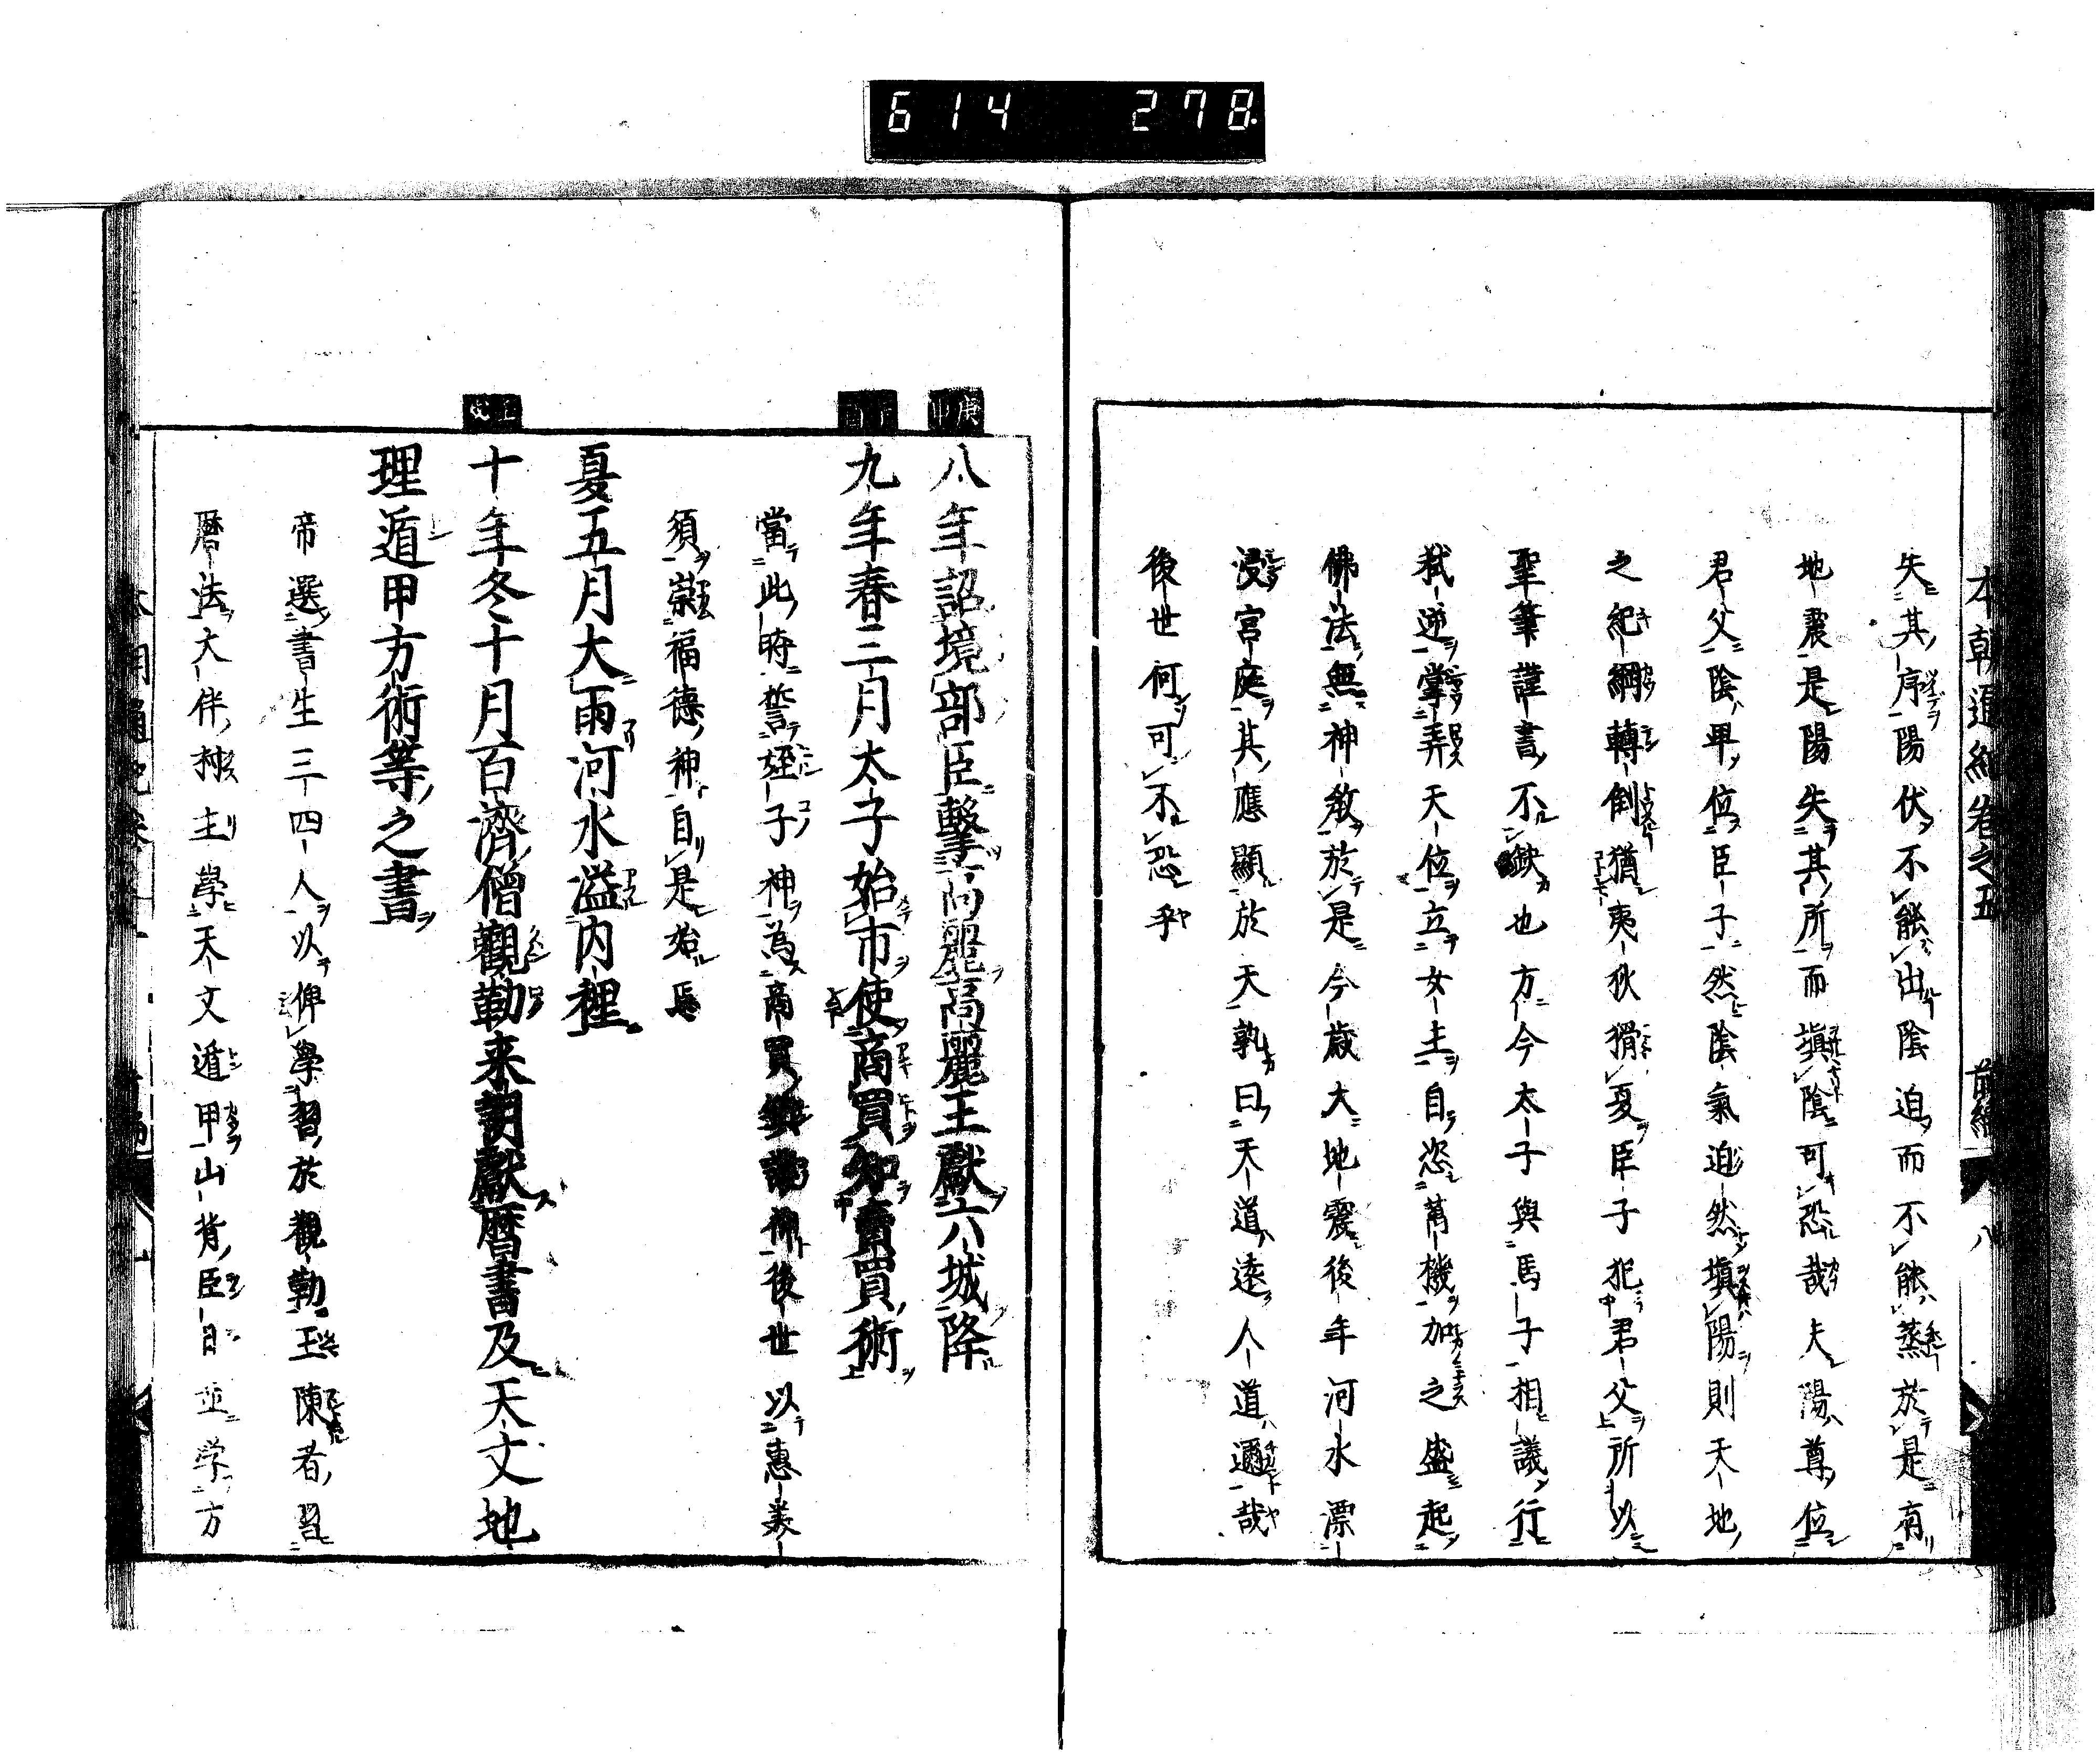 614 278
本朝通紀卷之五 前編 八
失其序陽伏不能出陰迫而不能蒸於是有
地震是陽失其所而塡陰可恐哉夫陽尊位
君父陰卑位臣子然陰氣迫然塡陽則天地
之紀綱轉倒猶夷狄猾夏臣子犯君父所以
聖筆謹書不缺也方今太子與馬子相議行
弑逆掌弄天位立女主自恣萬機加之盛起
佛法無神教於是今歲大地震後年河水漂
浸宮庭其應顯於天孰曰天道遠人道邇哉
後世何可不恐乎
庚申
八年詔境部臣擊高麗高麗王獻六城降
九年春三月太子始市使商買知賣買術
當此時誓蛭子神為商買神後世以惠美
須崇福德神自是始焉
夏五月大雨河水溢内裡
壬戌
十年冬十月百濟僧觀勒来朝獻曆書及天文地
理遁甲方術等之書
帝選書生三四人以俾學習於觀勒玉陳者習
曆法大伴村主學天文遁甲山背臣日並学方